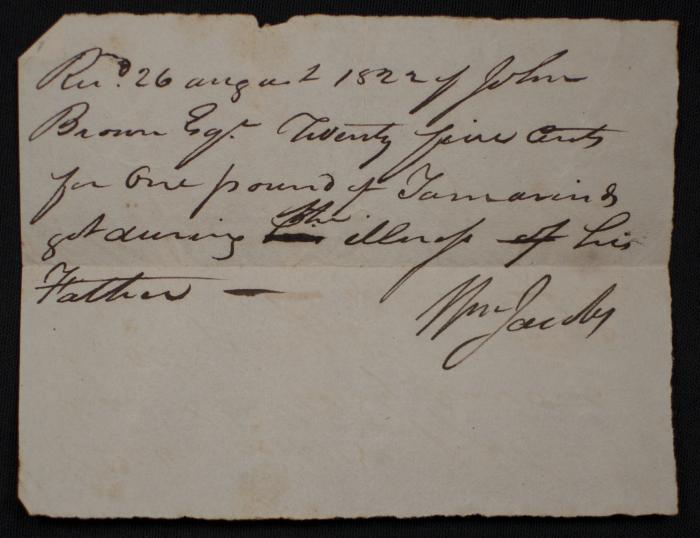 Recd. 26 august 1822 of John
Brown Esqr. Twenty five Cents
for One pound of Tamarinds
got during the illness of his
Father —
Wm Jacobs